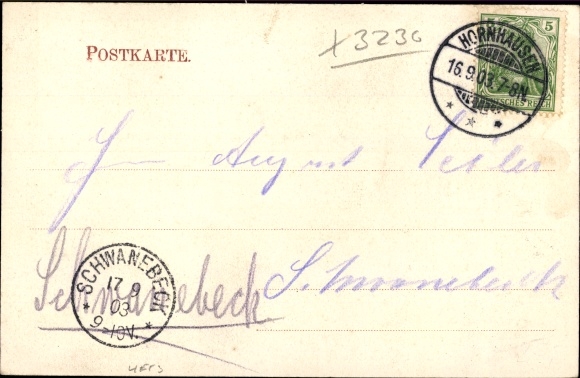 POSTKARTE.
x 3236
5
HORNHAUSEN
16.9.03.7-8N
DEUTSCHES REICH
August
Schwanebeck
Schwanebeck
SCHWANEBECK
17 9
03
9-10V.